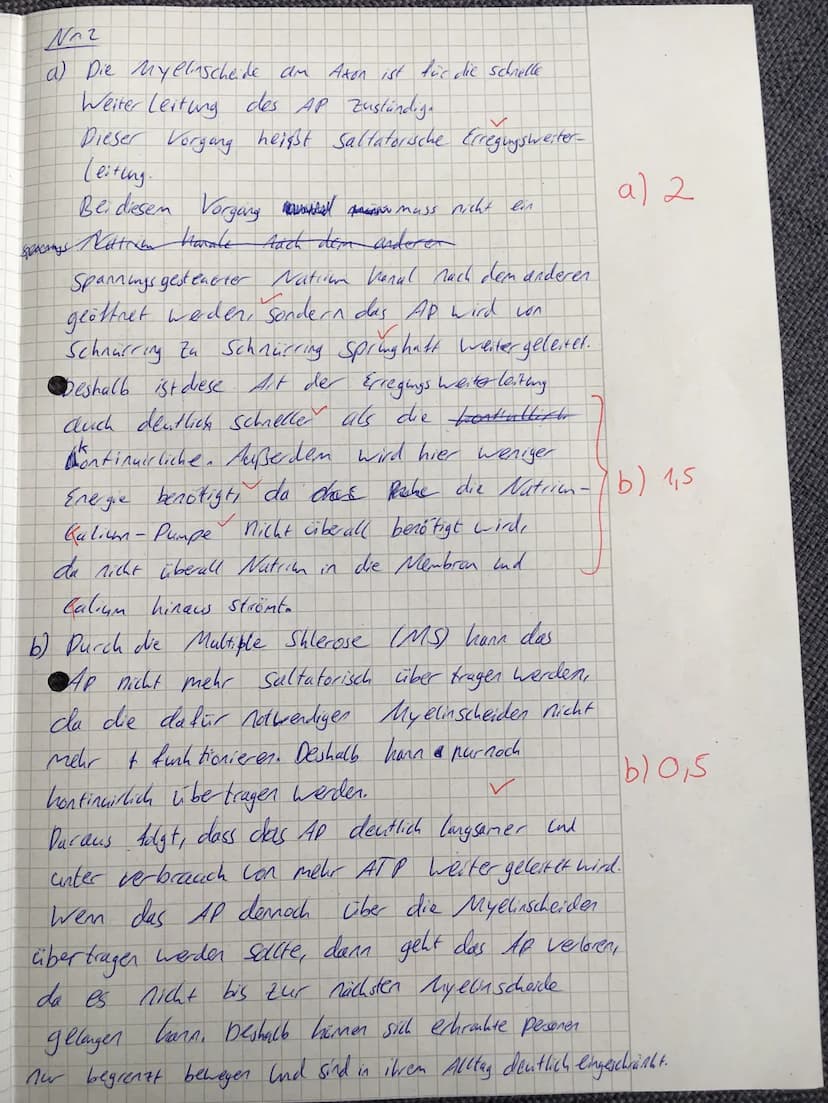 Nr 2
a) Die Myelinscheide am Axon ist für die schnelle
Weiterleitung des AP zuständig.
Dieser Vorgang heißt saltatorische Erregungsweiter-
leitung.
a) 2
Bei diesem Vorgang muss nicht ein
spannungs Natrium Kanale nach dem anderen
spannungsgesteuerter Natrium Kanal nach dem anderen
geöffnet werden, sondern das AP wird von
Schnürring zu Schnürring springhaft weitergeleitet.
Deshalb ist diese Art der Erregungsweiterleitung
auch deutlich schneller als die
kontinuirliche. Außerdem wird hier weniger
Energie benötigt, da die Natrium-
b) 1,5
Calium-Pumpe nicht überall benötigt wird,
da nicht überall Natrium in die Membran und
Calium hinaus strömt.
b) Durch die Multiple Sklerose (MS) kann das
AP nicht mehr saltatorisch übertragen werden,
da die dafür notwendigen Myelinscheiden nicht
mehr funktionieren. Deshalb kann nur noch
b) 0,5
kontinuirlich übertragen werden.
Daraus folgt, dass das AP deutlich langsamer und
unter verbrauch von mehr ATP weitergeleitet wird.
Wenn das AP dennoch über die Myelinscheiden
übertragen werden sollte, dann geht das AP verloren,
da es nicht bis zur nächsten Myelinscheide
gelangen kann. Deshalb können sich erkrankte Personen
nur begrenzt bewegen und sind in ihrem Alltag deutlich eingeschränkt.